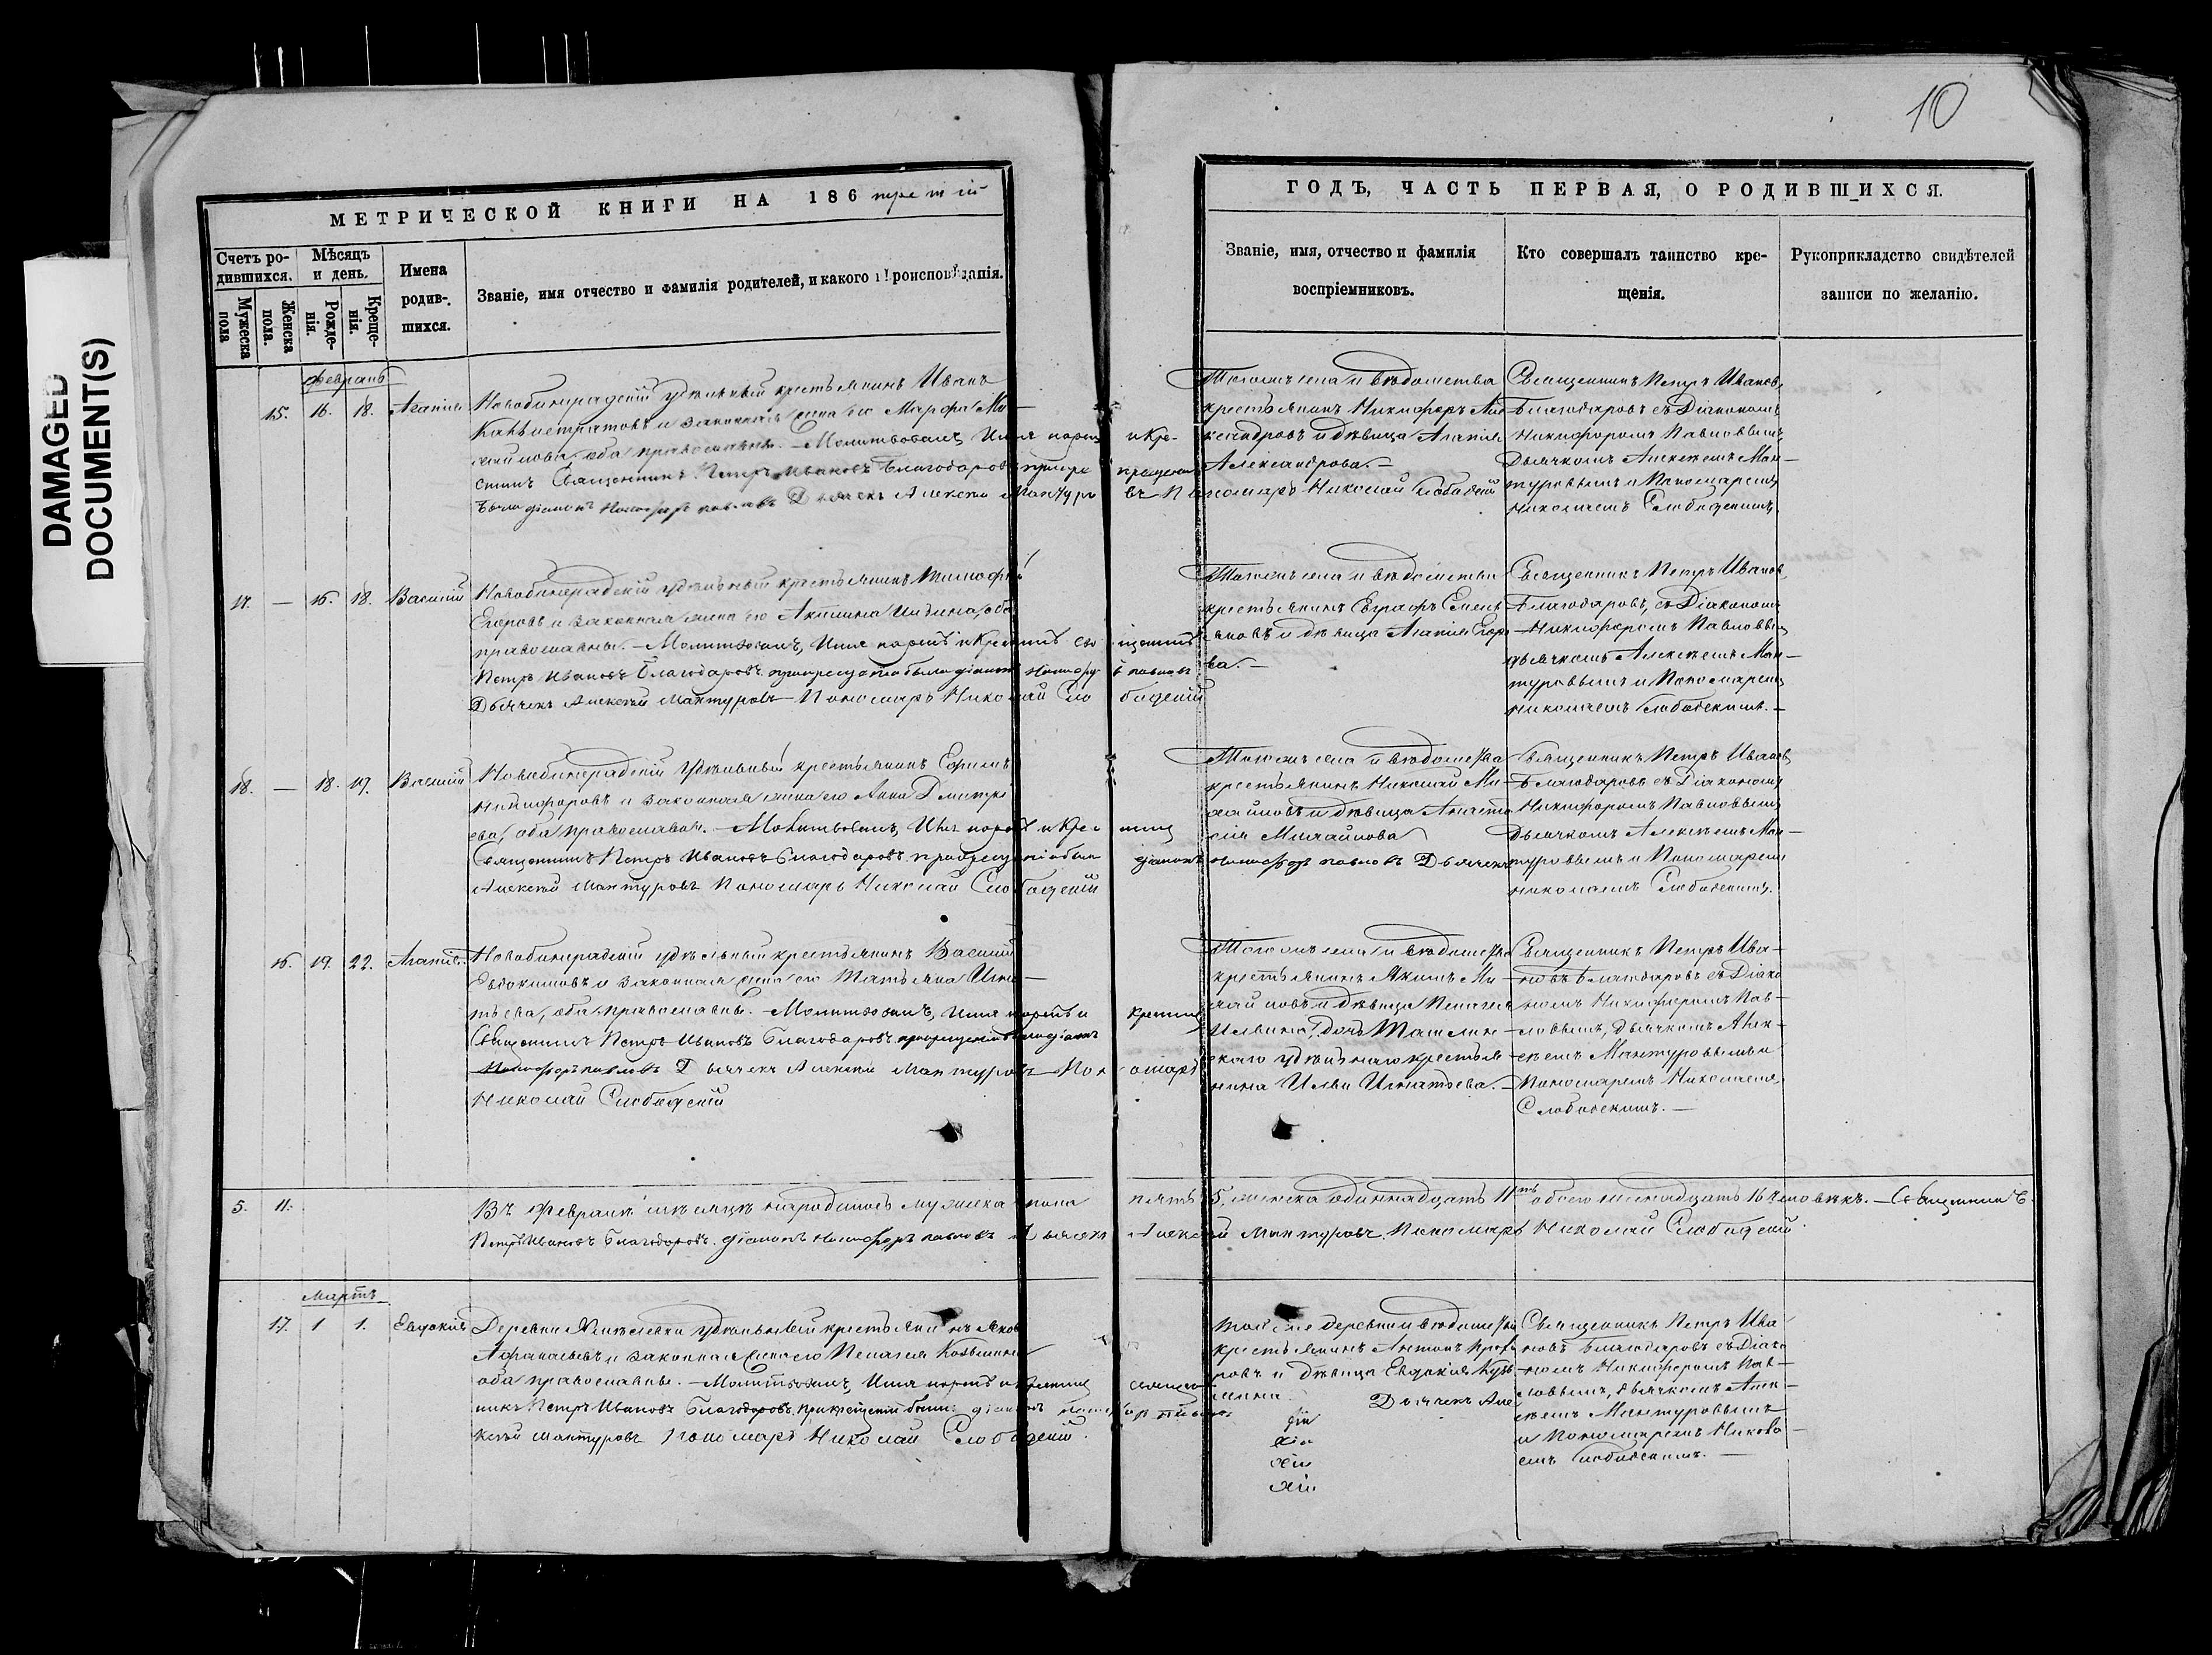 DAMAGED
DOCUMENT(S)
10
МЕТРИЧЕСКОЙ КНИГИ НА 186 третій
ГОДЪ, ЧАСТЬ ПЕРВАЯ, О РОДИВШИХСЯ.
Счетъ ро-
дившихся.
Мужеска
пола
Женска
пола.
Мѣсяцъ
и день.
Рожде-
нія.
Креще-
нія.
Имена
родив-
шихся.
Званіе, имя отчество и фамилія родителей, и какого вѣроисповѣданія.
Званіе, имя, отчество и фамилія
воспріемниковъ.
Кто совершалъ таинство кре-
щенія.
Рукоприкладство свидѣтелей
записи по желанію.
Февраль
15. 16. 18. Агапія
Новобинарадскій удѣльный крестьянинъ Иванъ
и законная жена его Марфа Ми-
хайлова, оба православны. – Молитвовалъ, Имя нарекъ и Кре-
стилъ Священникъ Петръ Ивановъ Благодаровъ при кре щеніи
были діаконъ Никифоръ павловъ Дьячекъ Алексей Мантуро въ Пономарь Николай Слободскій
Тогожъ села и вѣдомства
крестьянинъ Никифоръ Але-
ксандровъ и дѣвица Агапія
Александрова. –
Священникъ Петръ Ивановъ
Благодаровъ съ Діакономъ
Никифоромъ Павловымъ,
Дьячкомъ Алексѣемъ Ман-
туровымъ и Пономаремъ
Николаемъ Слободскимъ.
17. – 16. 18. Василій
Новобинарадскій удѣльный крестьянинъ Тимофей
Егоровъ и законная жена его Акилина оба
православны. – Молитвовалъ, Имя нарекъ и Крестилъ свя щенникъ
Петръ Ивановъ Благодаровъ при крещеніи были діаконъ Никифоръ павловъ
Дьячекъ Алексей Мантуровъ Пономарь Николай Сло бодскій
Тогожъ села и вѣдомства
крестьянинъ Евграфъ Емель-
яновъ и дѣвица Агапія Егоро-
ва. –
Священникъ Петръ Ивановъ
Благодаровъ, съ Діакономъ
Никифоромъ Павловымъ
дьячкомъ Алексѣемъ Ман-
туровымъ и Пономаремъ
Николаемъ Слободскимъ. –
18. – 18. 19. Василій
Новобинарадскій Удѣльный крестьянинъ Ефимъ
Никифоровъ и законная жена его Анна Дмитрі-
ева, оба православны. – Молитвовалъ, Имя нарекъ и Кре- стилъ
Священникъ Петръ Ивановъ Благодаровъ при крещеніи были діаконъ Никифоръ павловъ Дьячекъ
Алексей Мантуровъ Пономарь Николай Слободскій
Тогожъ села и вѣдомства
крестьянинъ Николай Ми-
хайловъ и дѣвица Анаста-
сія Михайлова
Священникъ Петръ Ивановъ
Благодаровъ съ Діакономъ
Никифоромъ Павловымъ
Дьячкомъ Алексѣемъ Ман-
туровымъ и Пономаремъ
Николаемъ Слободскимъ.
16. 19. 22. Агапія.
Новобинарадскій удѣльный крестьянинъ Василій
Евдокимовъ и законная жена его Татьяна Игна-
тьева, оба православны. – Молитвовалъ, Имя нарекъ и крестилъ
Священникъ Петръ Ивановъ Благодаровъ при крещеніи были діаконъ
Никифоръ павловъ Дьячекъ Алексей Мантуровъ Пон омарь
Николай Слободскій
Тогожъ села и вѣдомства
крестьянинъ Акимъ Ми-
хайловъ и дѣвица Пелагея
Ильина, дочь Ташлин-
скаго удѣльнаго крестья-
нина Ильи Игнатьева. –
Священникъ Петръ Ива-
новъ Благодаровъ съ Діако-
номъ Никифоромъ Пав-
ловымъ, дьячкомъ Алек-
сѣемъ Мантуровымъ и
Пономаремъ Николаемъ
Слободскимъ. –
5. 11.
Въ Февралѣ мѣсяцѣ народилось мужеска пола пять 5, женска одиннадцать 11ть обоего шеснадцать 16 человѣкъ. – Священникъ
Петръ Ивановъ Благодаровъ. діаконъ Никифоръ павловъ Дьячекъ Алексей Мантуровъ. Пономарь Николай Слободскій
Мартъ
17. 1 1. Евдокія
Деревни удѣльный крестьянинъ Яковъ
Афанасьевъ и законная жена его Пелагея Козьмина
оба православны. – Молитвовалъ, Имя нарекъ и Крестилъ священ-
никъ Петръ Ивановъ Благодаровъ. При крещеніи были: діаконъ Никифоръ павловъ Дьячекъ Але-
ксѣй Мантуровъ Пономарь Николай Слободскій.
Той же деревни и вѣдомства
крестьянинъ Антонъ
и дѣвица Евдокія Кузь-
мина.
Священникъ Петръ Ива-
новъ Благодаровъ съ Діако-
номъ Никифоромъ Пав-
ловымъ, дьячкомъ Алек-
сѣемъ Мантуровымъ
и Пономаремъ Никола-
емъ Слободскимъ. –